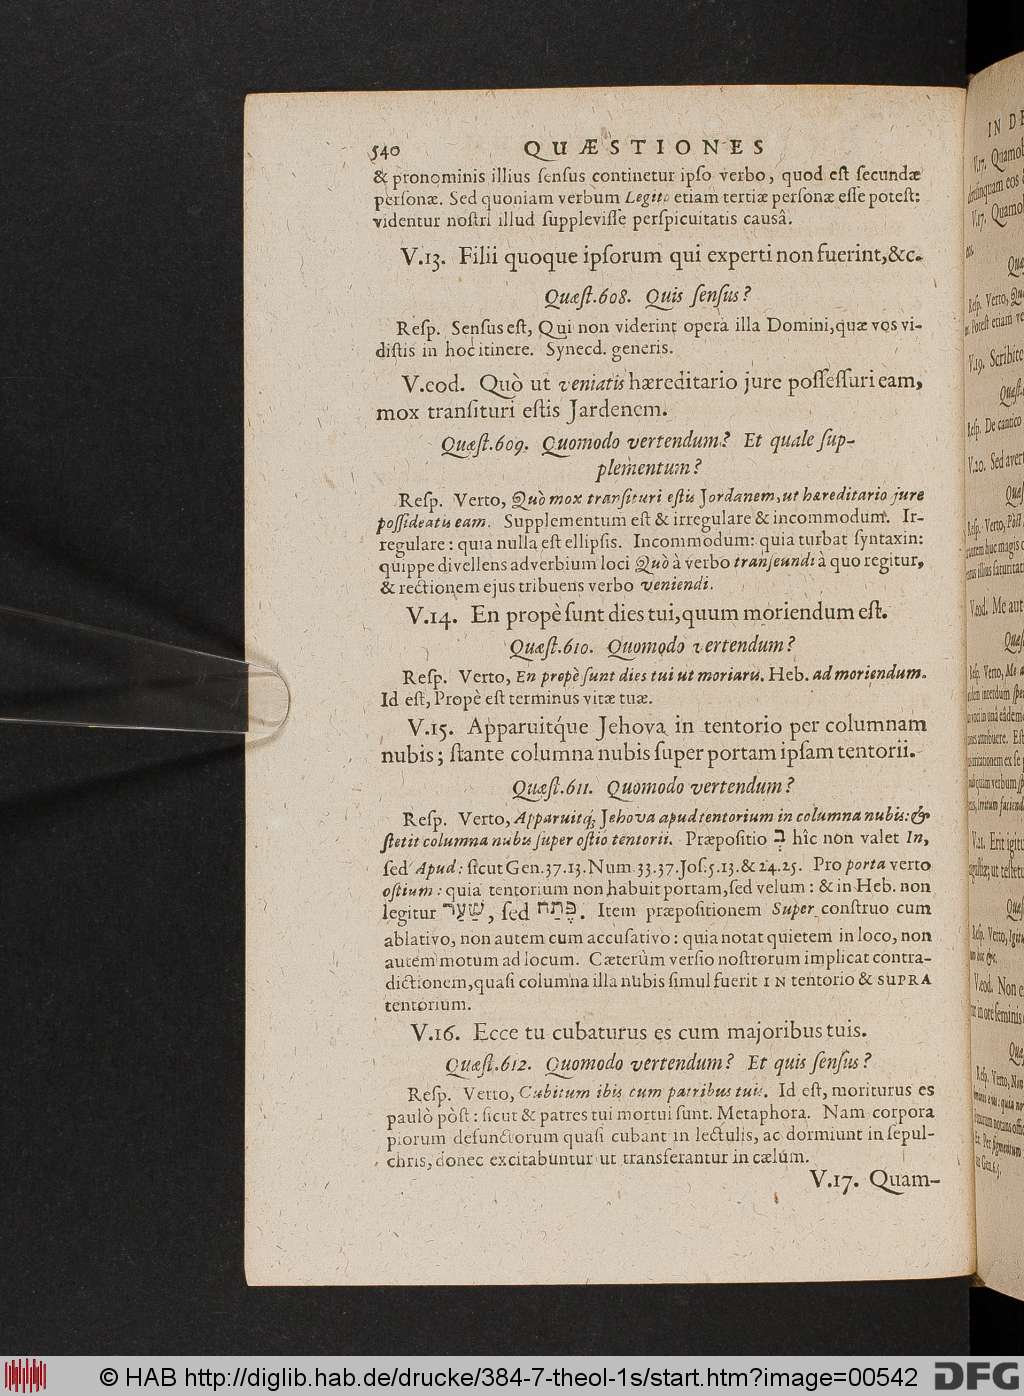 540 QUÆSTIONES
& pronominis illius ſenſus continetur ipſo verbo, quod eſt ſecundæ
perſonæ. Sed quoniam verbum Legito etiam tertiæ perſonæ eſſe poteſt:
videntur noſtri illud ſuppleviſſe perſpicuitatis causâ.
V.13. Filii quoque ipſorum qui experti non fuerint,&c.
Quæſt.608. Quis ſenſus?
Reſp. Senſus eſt, Qui non viderint opera illa Domini,quæ vos vi-
diſtis in hoc itinere. Synecd. generis.
V.eod. Quò ut veniatis hæreditario jure poſſeſſuri eam,
mox tranſituri eſtis Jardenem.
Quæſt.609. Quomodo vertendum? Et quale ſup-
plementum?
Reſp. Verto, Quò mox tranſituri eſtis Jordanem,ut hæreditario jure
poſſideatis eam. Supplementum eſt & irregulare & incommodum. Ir-
regulare: quia nulla eſt ellipſis. Incommodum: quia turbat ſyntaxin:
quippe divellens adverbium loci Quò à verbo tranſeundi à quo regitur,
& rectionem ejus tribuens verbo veniendi.
V.14. En propè ſunt dies tui,quum moriendum eſt.
Quæſt.610. Quomodo vertendum?
Reſp. Verto, En propè ſunt dies tui ut moriaris. Heb. ad moriendum.
Id eſt, Propè eſt terminus vitæ tuæ.
V.15. Apparuitq́ue Jehova in tentorio per columnam
nubis; ſtante columna nubis ſuper portam ipſam tentorii.
Quæſt.611. Quomodo vertendum?
Reſp. Verto, Apparuitq́; Jehova apud tentorium in columna nubis: &
ſtetit columna nubis ſuper oſtio tentorii. Præpoſitio בְּ hîc non valet In,
ſed Apud: ſicut Gen.37.13.Num.33.37.Joſ.5.13.& 24.25. Pro porta verto
oſtium: quia tentorium non habuit portam,ſed velum: & in Heb. non
legitur שַׁעַר, ſed פֶּתַח. Item præpoſitionem Super conſtruo cum
ablativo, non autem cum accuſativo: quia notat quietem in loco, non
autem motum ad locum. Cæterùm verſio noſtrorum implicat contra-
dictionem,quaſi columna illa nubis ſimul fuerit IN tentorio & SUPRA
tentorium.
V.16. Ecce tu cubaturus es cum majoribus tuis.
Quæſt.612. Quomodo vertendum? Et quis ſenſus?
Reſp. Verto, Cubitum ibis cum patribus tuis. Id eſt, moriturus es
paulò pòſt: ſicut & patres tui mortui ſunt. Metaphora. Nam corpora
piorum defunctorum quaſi cubant in lectulis, ac dormiunt in ſepul-
chris, donec excitabuntur ut transferantur in cælum.
V.17. Quam-
© HAB http://diglib.hab.de/drucke/384-7-theol-1s/start.htm?image=00542
DFG